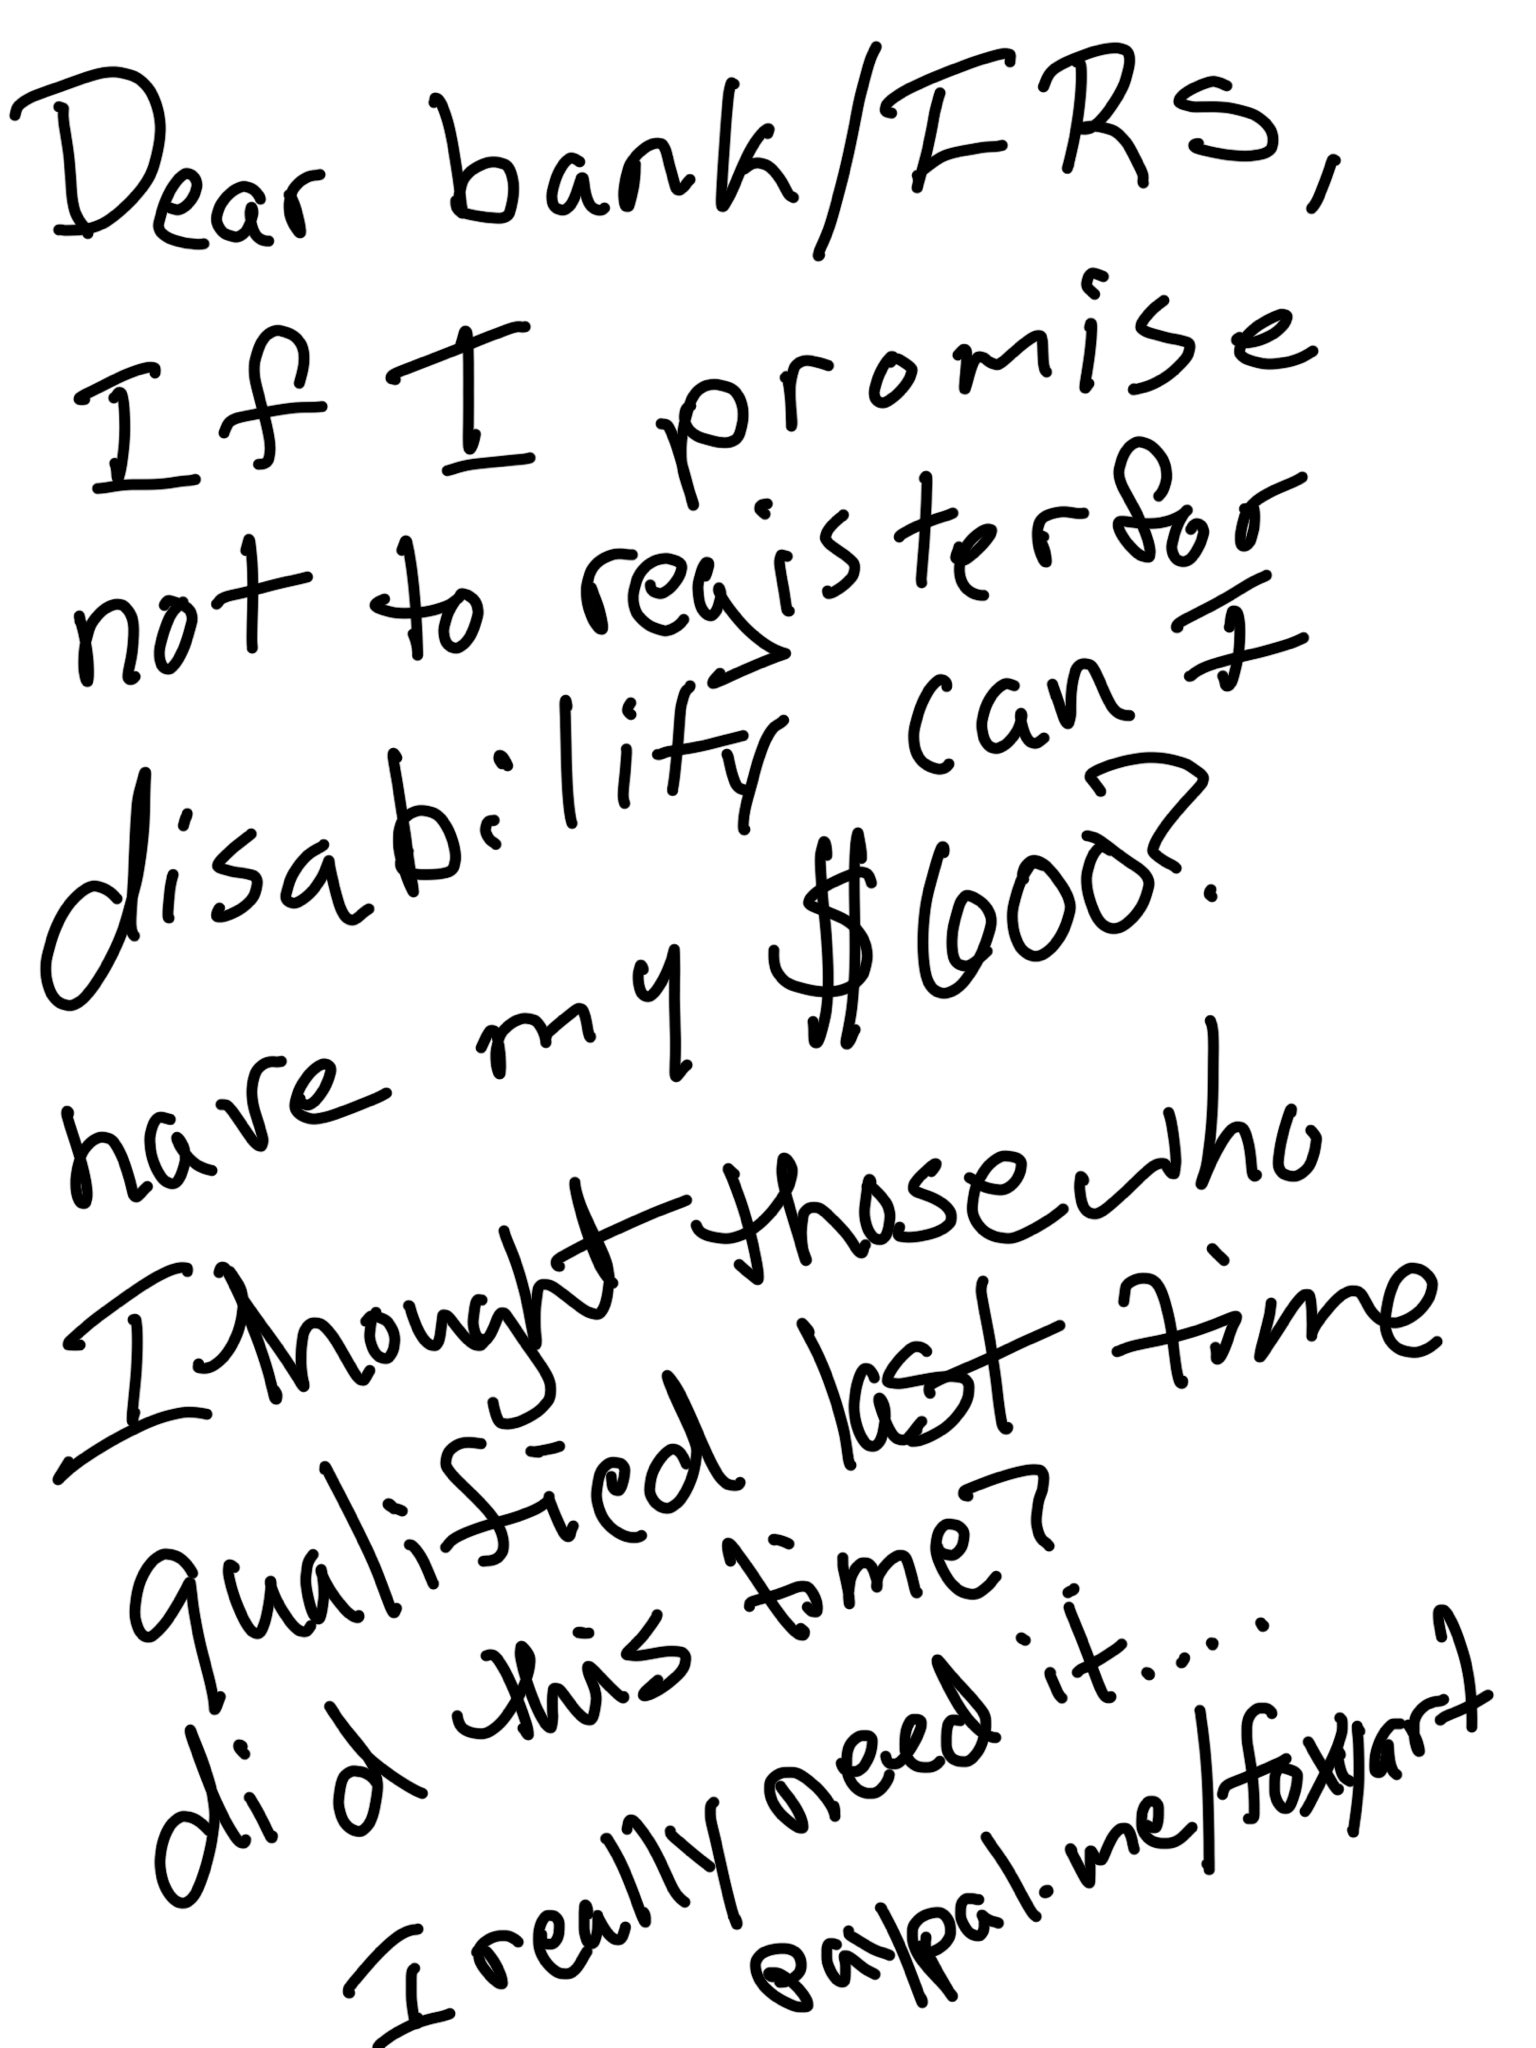 Dear bank/IRS,
If I promise
not to register for
disability can I
have my $600?
I thought those who
qualified last time
did this time?
I really need it....
paypal.me/foxyart